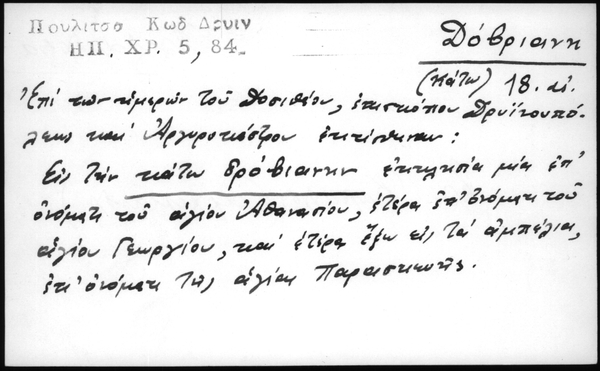 Πουλιτσα Κωδ Δρυιν
ΗΠ. ΧΡ. 5, 84.
Δόβριανη
(κάτω) 18. αἰ.
Ἐπί των ἡμερών τοῦ Δοσιθέου, ἐπισκόπου Δρυϊνουπό-
λεως και Ἀργυροκάστρου ἐκτίσθησαν:
Εἰς τήν κάτω δρόβιανην ἐκκλησία μία ἐπ'
ὀνόματι τοῦ ἁγίου Ἀθανασίου, ἑτέρα ἐπ' ὀνόματι τοῦ
ἁγίου Γεωργίου, καί ἑτέρα ἔξω εἰς τά ἀμπέλια,
ἐπ' ὀνόματι τῆς ἁγίας Παρασκευῆς.